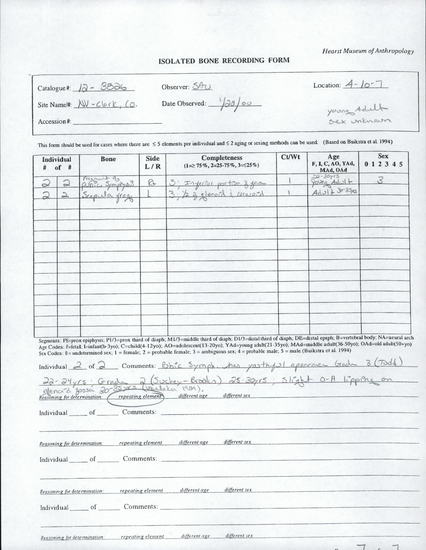 Hearst Museum of Anthropology
ISOLATED BONE RECORDING FORM
Catalogue#: 12-3826 Observer: SAU Location: 4-10-7
Site Name/#: NV-Clark, Co. Date Observed: 1/20/00
young Adult
Accession#: sex unknown
This form should be used for cases where there are ≤ 5 elements per individual and ≤ 2 aging or sexing methods can be used. (Based on Buikstra et al. 1994)
Individual Bone Side Completeness Ct/Wt Age Sex
# of # L / R (1=≥ 75%, 2=25-75%, 3=≤25%) F, I, C, AO, YAd, 0 1 2 3 4 5
MAd, OAd
2 2 Pubic Symphysis R 3; Inferior portion 1 22-30yrs young Adult 3
2 2 Scapula L 3; 1/2 of glenoid 1 Adult
Segments: PE=prox epiphysis; P1/3=prox third of diaph; M1/3=middle third of diaph; D1/3=distal third of diaph; DE=distal epiph; B=vertebral body; NA=neural arch
Age Codes: F=fetal, I=infant(0-3yo), C=child(4-12yo), AO=adolescent(13-20yo), YAd=young adult(21-35yo), MAd=middle adult(36-50yo), OAd=old adult(50+yo)
Sex Codes: 0 = undetermined sex; 1 = female; 2 = probable female; 3 = ambiguous sex; 4 = probable male; 5 = male (Buikstra et al. 1994)
Individual 2 of 2 Comments: Pubic Symph. has youthful apperance Grade 3 (Todd)
22-24yrs; Grade 2 (Suchey-Brooks) 25-30yrs, slight O-A lipping on
glenoid fossa
Reasoning for determination: repeating element different age different sex
Individual of Comments:
Reasoning for determination: repeating element different age different sex
Individual of Comments:
Reasoning for determination: repeating element different age different sex
Individual of Comments:
Reasoning for determination: repeating element different age different sex